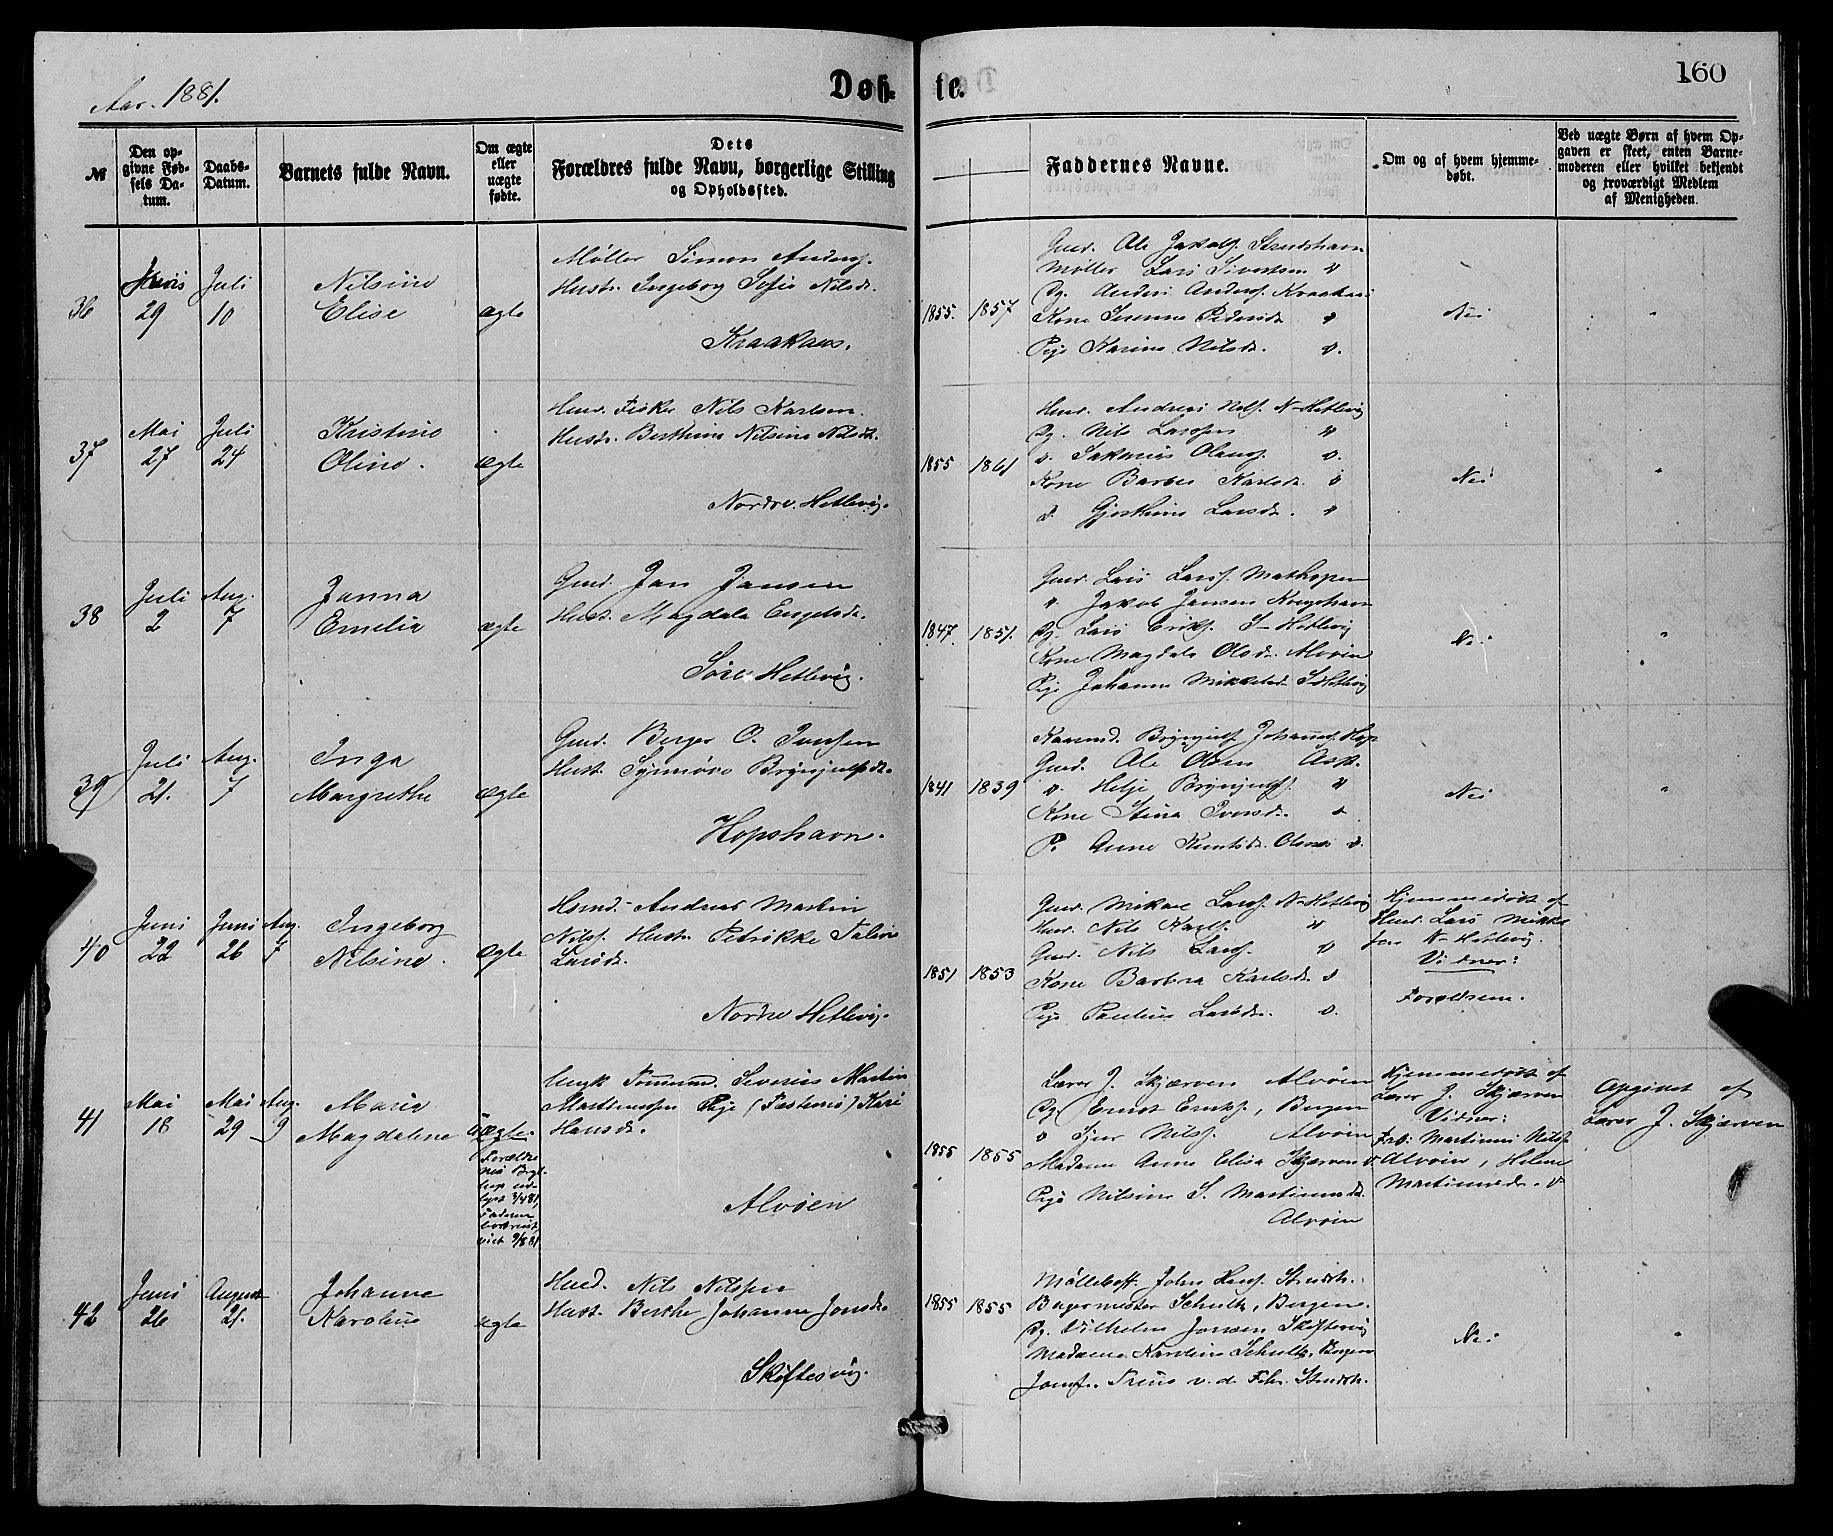 Aar. 1881.
Døb-
te.
160
№
Den op-
givne Fød-
sels Da-
tum.
Daabs-
Datum.
Barnets fulde Navn.
Om ægte
eller
uægte
fødte.
Dets
Forældres fulde Navn, borgerlige Stilling
og Opholdssted.
Faddernes Navne.
Om og af hvem hjemme-
døbt.
Ved uægte Børn af hvem Op-
gaven er skeet, enten Barne-
moderen eller hvilket bekjendt
og troværdigt Medlem
af Menigheden.
36
29
Juli
10
Nilsine
Elise
ægte
Møller Simon Anders.
Hustr. Ingeborg Sofie Nilsdr.
Kraakaas.
1855. 1857
Gmd. Ole Jakobs.
Møller Lars Sivertsen "
Pg. Anders Anders. Kraakaas
Kone Serenne Pedersdr "
Pige Karine Nilsdr. "
Nei
"
37
Mai
27
Juli
24
Kristine
Oline.
ægte
Huusd. Fisker Nils Karlsen.
Hustr. Berthine Nilsine Nilsdr.
Nordre Hetlevig.
1855 1861
Andreas Nils. N-Hetlevig
Pg. Nils Larssen "
" Zakarias Olens. "
Kone Barbra Karlsdr. "
" Gjerthine Larsdr. "
Nei
"
38
Juli
2
Aug.
7
Janna
Emelia
ægte
Gmd. Jan Jansen
Hust. Magdala Engelsdr.
Søre Hetlevig.
1847. 1851.
Gmd. Lars Larss. Mathopen
" Jakob Jansen
Pg. Lars Eriks. S-Hetlevig
Kone Magdala Olsdr. Alvøen
Pige Johanna Mikkelsdr. S Hetlevig
Nei
"
39
Juli
21.
Aug.
7
Inga
Margrethe
ægte
Gmd. Berger O. Iversen
Hust. Synnøve Brynjulfsdr.
Hopshavn.
1841 1839
Brynjulf Johannes. Hop
Gmd. Ole Olsen Ask.
" Helje Brynjulfs. "
Kone Stina Iversdr. "
P. Anne Knutsdr.
Nei
"
40
Juni
22
Juni
26
Aug.
7
Ingeborg
Nilsine.
ægte
Huusmd. Andreas Martin
Nils. Hustr. Petrikke Taline
Larsdr.
Nordre Hetlevig.
1851 1853
Gmd. Mikael Larss. N-Hetlevig
Nils Karls. "
Gmd. Nils Larss. "
Kone Barbra Karlsdr. "
Pige Pauline Larsdr. "
Hjemmedøbt af
Lars Mikkel
sen N-Hetlevig.
Vidner:
Forældrene.
41
Mai
18
Mai
29
Aug.
9
Maria
Magdalene
uægte.
Forældre
nes Bryl
lup ud-
lyst 3/4 81,
Faderen
bortreist,
viet 9/8 81.
Ungk. Tømmermd. Severin Martin
Martinussen Pige (Fæstemø) Kari
Hansdr.
Alvøen
1855 1855
Lærer J. Skjærven Alvøen
Pg. Ernst Eriks., Bergen
" Sjur Nilss. Alvøen
Madame Anne Elisa Skjærven "
Pige Nilsine S. Martinusdr.
Alvøen
Hjemmedøbt af
Lærer J. Skjærven
Vidner:
Fab. Martinus Nilss.
Alvøen, Helene
Martinusdr. "
Opgivet af
Lærer J. Skjærven
42
Juni
26
August
21.
Johanne
Karoline
ægte
Nils Nilssen
Hust. Berthe Johanne Jonsdr.
Skiftesvig.
1855 1855
Bagermester Schultz, Bergen.
Pg. Vilhelm Jonsen, Skiftesvig
Madame Karoline Schultz, Bergen
Nei
"